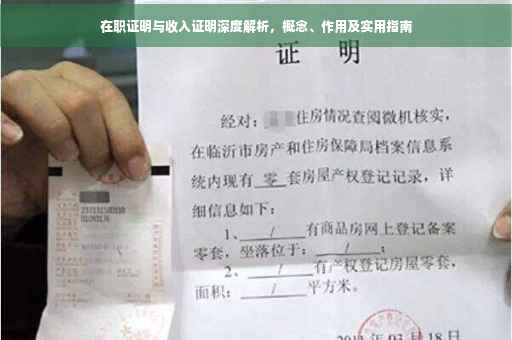 在职证明与收入证明深度解析，概念、作用及实用指南
证 明
经对：住房情况查阅微机核实，
在临沂市房产和住房保障局档案信息系
统内现有 零 套房屋产权登记记录，详
细信息如下：
1、 / 有商品房网上登记备案
零套，坐落位于： / ；
2、 / 有产权登记房屋零套，
面积： / 平方米。
月 18 日